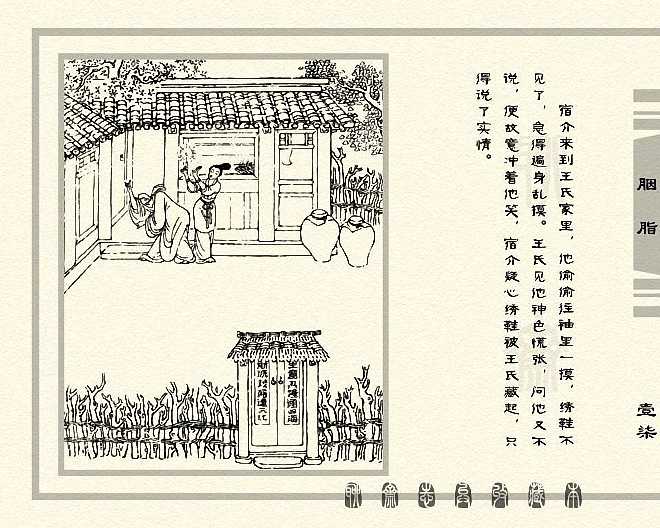 胭脂
壹柒
宿介来到王氏家里，他偷偷往袖里一摸，绣鞋不
见了，急得遍身乱摸。王氏见他神色慌张，问他又不
说，便故意冲着他笑。宿介疑心绣鞋被王氏藏起，只
得说了实情。
聊斋志异收藏本